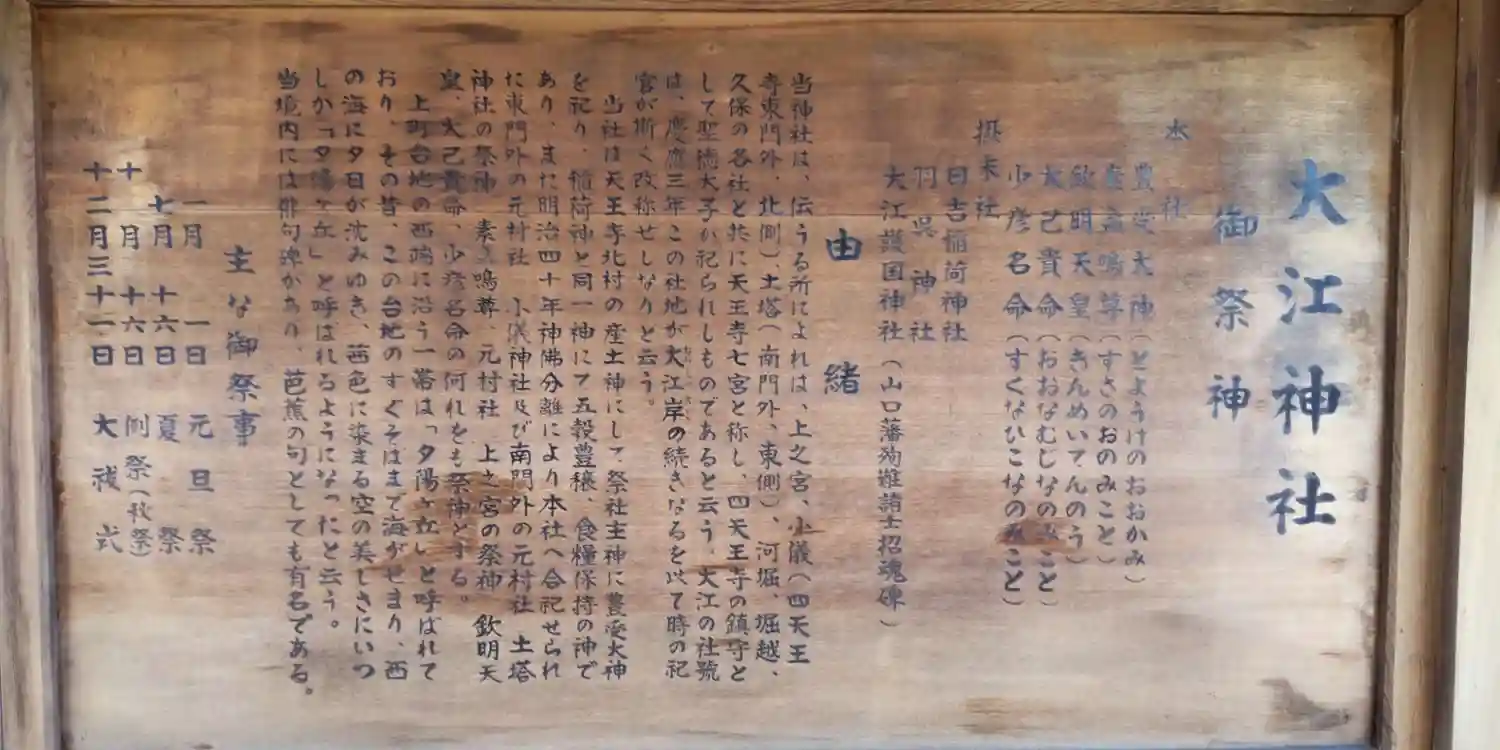 大江神社
御祭神
本社
豊受大神(とようけのおおかみ)
素盞嗚尊(すさのおのみこと)
欽明天皇(きんめいてんのう)
大己貴命(おおなむじなのみこと)
少彦名命(すくなひこなのみこと)
摂末社
日吉稲荷神社
羽呉神社
大江護国神社(山口藩殉難諸士招魂碑)
由緒
当神社は、伝うる所によれは、上之宮、小儀(四天王
寺東門外、北側)土塔(南門外、東側)、河堀、堀越、
久保の各社と共に天王寺七宮と称し、四天王寺の鎮守と
して聖徳太子が祀られしものであると云う。大江の社號
は、慶應三年この社地が大江岸の続きなるを以て時の祀
官が斯く改称せしなりと云う。
当社は天王寺北村の産土神にして祭社主神に豊受大神
を祀り、稲荷神と同一神にて五穀豊穣、食糧保持の神で
あり、また明治四十年神佛分離により本社へ合祀せられ
た東門外の元村社 小儀神社及び南門外の元村社 土塔
神社の祭神 素盞嗚尊、元村社 上之宮の祭神 欽明天
皇、大己貴命、少彦名命の何れをも祭神とする。
上町台地の西端に沿う一帯は「夕陽ヶ丘」と呼ばれて
おり、その昔、この台地のすぐそばまで海がせまり、西
の海に夕日が沈みゆき、茜色に染まる空の美しさにいつ
しか「夕陽ヶ丘」と呼ばれるようになったと云う。
当境内には俳句碑があり、芭蕉の句としても有名である。
主な御祭事
一月 一日 元旦祭
七月 十六日 夏祭
十月 十六日 例祭(秋祭)
十二月三十一日 大祓式